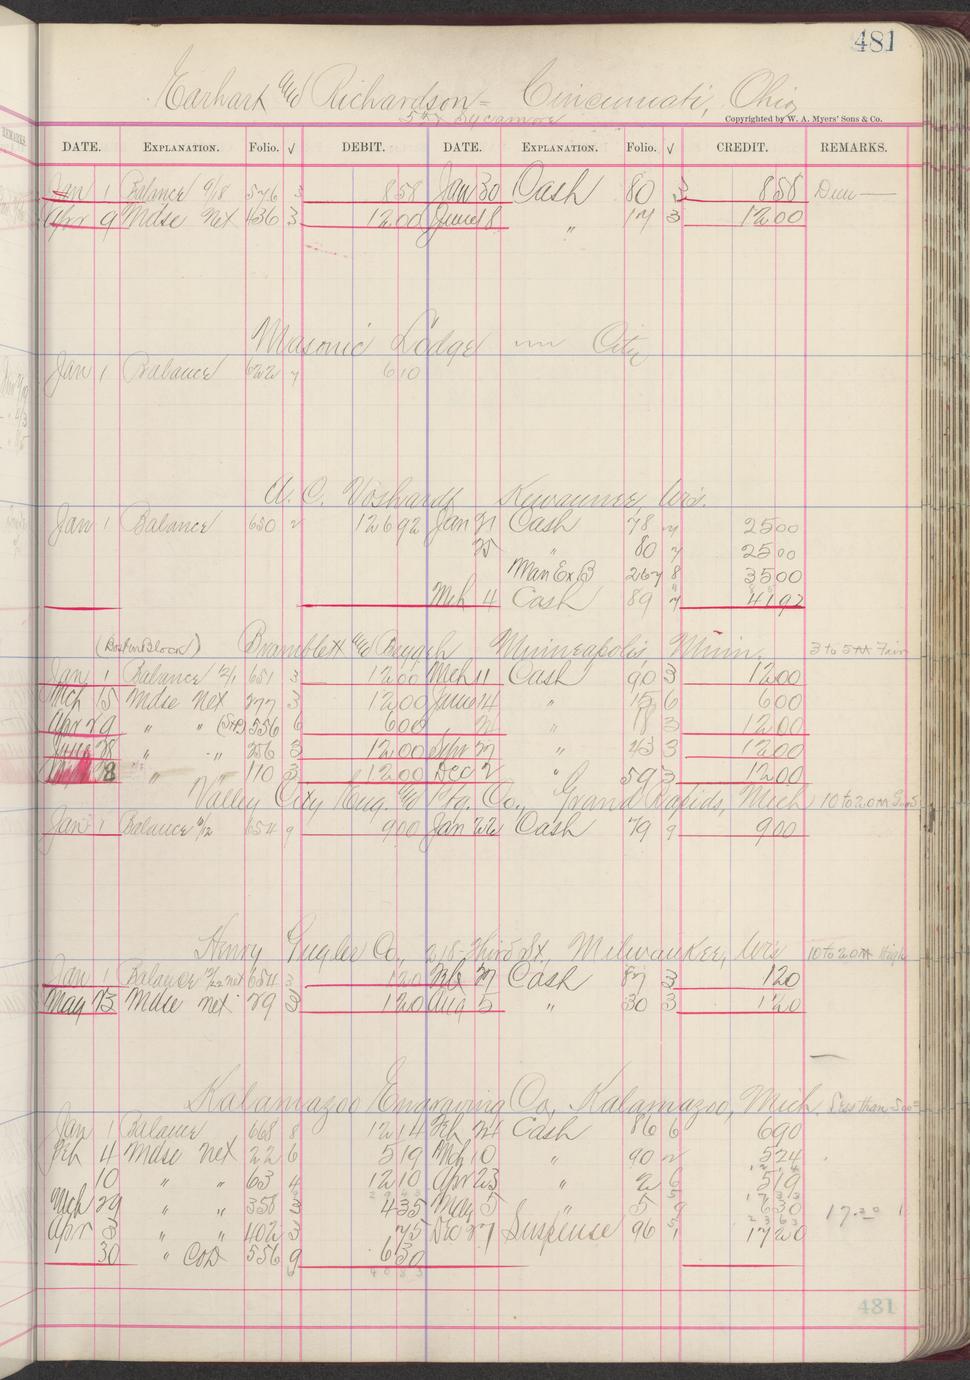 481
Earhart & Richardson = Cincinnati, Ohio
5th & Sycamore
Copyrighted by W. A. Myers' Sons & Co.
DATE. EXPLANATION. Folio. √ DEBIT. DATE. EXPLANATION. Folio. √ CREDIT. REMARKS.
Jan 1 Balance 9/18 576 3 858 Jan 30 Cash 80 3 858
Apr 9 Mdse net 436 3 1200 June 18 " 17 3 1200
Masonic Lodge City
Jan 1 Balance 622 7 610
A. C. Voshardt Kewaunee, Wis.
Jan 1 Balance 650 2 12692 Jan 21 Cash 78 7 2500
25 " 80 7 2500
Man Ex B 267 8 3500
Mch 4 Cash 89 7 4192
(Boston Block) Bramblett & Beygeh Minneapolis, Minn. 3 to 5 M Fair
Jan 1 Balance 12/1 651 3 1200 Mch 11 Cash 90 3 1200
Mch 15 Mdse Net 277 3 1200 June 14 " 15 6 600
Apr 29 " " 556 6 600 " 18 3 1200
28 " " 256 3 1200 Sept 27 " 43 3 1200
8 " 110 3 1200 Dec 2 " 59 3 1200
Valley City Eng. & Ptg. Co., Grand Rapids, Mich 10 to 20 M Good
Jan 1 Balance 654 9 900 Jan 22 Cash 79 9 900
Henry Gugler Co., 218 Third St., Milwaukee, Wis 10 to 20 M High
Jan 1 Balance 12/22 net 654 3 120 Feb 27 Cash 87 3 120
May 23 Mdse net 79 3 120 Aug 5 " 30 3 120
Kalamazoo Engraving Co, Kalamazoo, Mich. Less than 500
Jan 1 Balance 668 8 1214 Feb 24 Cash 86 6 690
Feb 4 Mdse net 22 6 519 Mch 10 " 90 2 524
10 " " 63 4 1210 Apr 23 " 2 6 519
Mch 29 " " 358 3 435 May 5 5 9 630
Apr 3 " " 402 3 75 Dec 27 Suspense 96 1 1720
30 " COD 556 9 630
4083
481